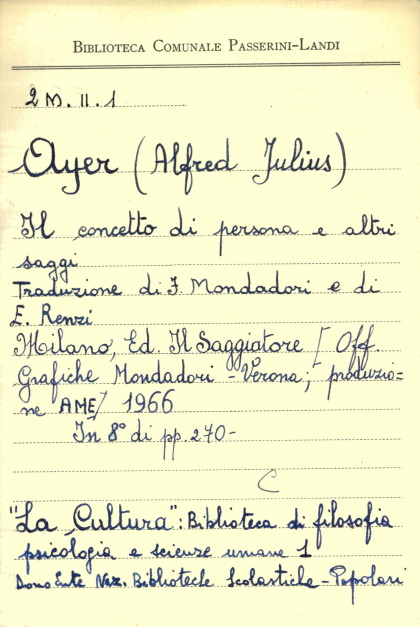 BIBLIOTECA COMUNALE PASSERINI-LANDI
2 M. II. 1
Ayer (Alfred Julius)
Il concetto di persona e altri
saggi
Traduzione di F. Mondadori e di
E. Renzi
Milano, Ed. Il Saggiatore [Off.
Grafiche Mondadori - Verona; produzio=
ne AME] 1966
In 8° di pp. 270-
C
"La Cultura": Biblioteca di filosofia
psicologia e scienze umane 1
Dono Ente Naz. Biblioteche Scolastiche - Popolari